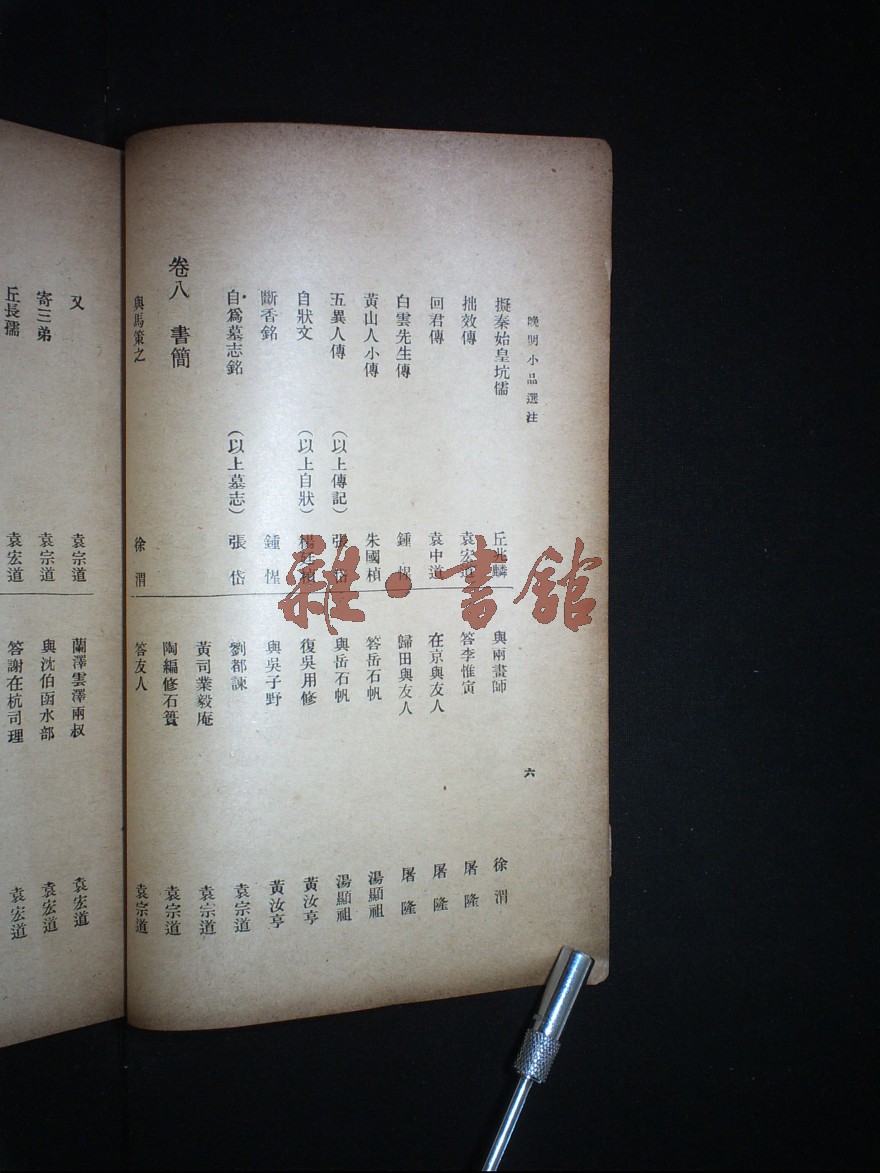 晚明小品選注
六
擬秦始皇坑儒 丘兆麟
拙效傳 袁宏道
回君傳 袁中道
白雲先生傳 鍾惺
黃山人小傳 朱國楨
五異人傳 (以上傳記) 張岱
自狀文 (以上自狀)
斷香銘 鍾惺
自爲墓志銘 (以上墓志) 張岱
卷八 書簡
與馬策之 徐渭
與兩畫師 徐渭
答李惟寅 屠隆
在京與友人 屠隆
歸田與友人 屠隆
答岳石帆 湯顯祖
與岳石帆 湯顯祖
復吳用修 黃汝亨
與吳子野 黃汝亨
劉都諫 袁宗道
黃司業毅庵 袁宗道
陶編修石簣 袁宗道
答友人 袁宗道
又 袁宗道
寄三弟 袁宗道
丘長孺 袁宏道
蘭澤雲澤兩叔 袁宏道
與沈伯函水部 袁宏道
答謝在杭司理 袁宏道
雜·書館